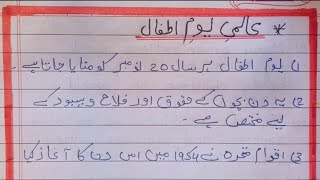 * عالمی یومِ اطفال
1) یوم اطفال ہر سال 20 نومبر کو منایا جاتا ہے۔
2) یہ دن بچوں کے حقوق اور فلاح و بہبود کے
لیے مختص ہے۔
3) اقوام متحدہ نے 1954 میں اس دن کا آغاز کیا